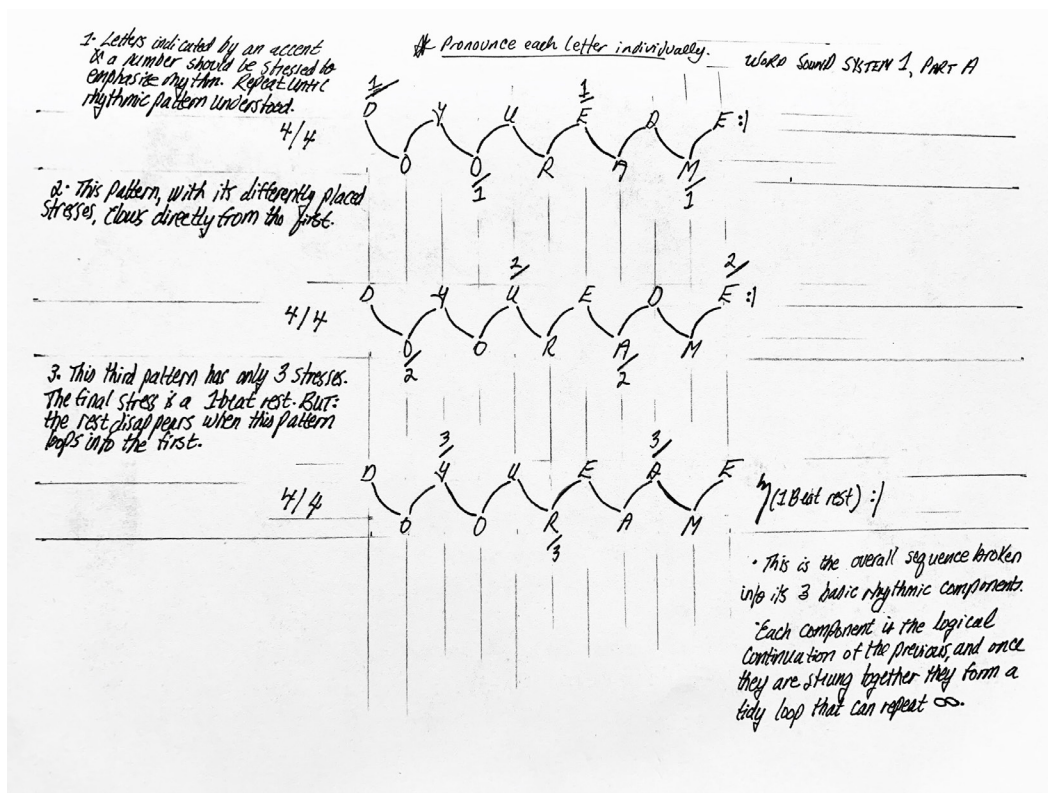 1- Letters indicated by an accent
& a number should be stressed to
emphasize rhythm. Repeat until
rhythmic pattern understood.
* Pronounce each letter individually.
WORD SOUND SYSTEM 1, PART A
1 1
D Y U E D E :|
4/4
O O R A M
1 1
2- This pattern, with its differently placed
stresses, flows directly from the first.
2 2
D Y U E D E :|
4/4
O O R A M
2 2
3. This third pattern has only 3 stresses.
The final stress is a 1beat rest. BUT:
the rest disappears when this pattern
loops into the first.
3 3
D Y U E D E
4/4
(1 Beat rest) :|
O O R A M
3
· This is the overall sequence broken
into its 3 basic rhythmic components.
· Each component is the logical
continuation of the previous, and once
they are strung together they form a
tidy loop that can repeat ∞.